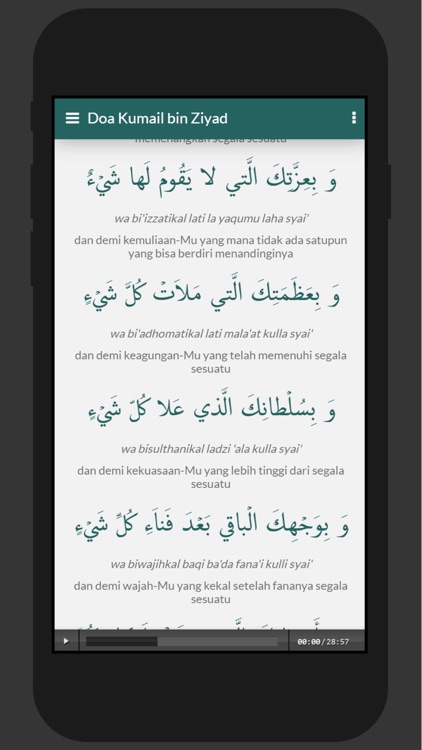 Doa Kumail bin Ziyad
memenangkan segala sesuatu
وَ بِعِزَّتِكَ الَّتي لا يَقُومُ لَها شَيْءٌ
wa bi'izzatikal lati la yaqumu laha syai'
dan demi kemuliaan-Mu yang mana tidak ada satupun
yang bisa berdiri menandinginya
وَ بِعَظَمَتِكَ الَّتي مَلاَتْ كُلَّ شَيْءٍ
wa bi'adhomatikal lati mala'at kulla syai'
dan demi keagungan-Mu yang telah memenuhi segala
sesuatu
وَ بِسُلْطانِكَ الَّذي عَلا كُلّ شَيْءٍ
wa bisulthanikal ladzi 'ala kulla syai'
dan demi kekuasaan-Mu yang lebih tinggi dari segala
sesuatu
وَ بِوَجْهِكَ الْباقي بَعْدَ فَناَءِ كُلِّ شَيْءٍ
wa biwajhikal baqi ba'da fana'i kulli syai'
dan demi wajah-Mu yang kekal setelah fananya segala
sesuatu
00:00/28:57